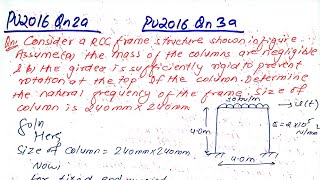 PU2016 Qn2a PU2016 Qn 3a
Qn: Consider a RCC frame structure shown in figure.
Assume (a) the mass of the columns are negligible
& b) the girder is sufficiently rigid to prevent
rotation at the top of the column. Determine
the natural frequency of the frame. Size of
column is 240mm x 240mm
30 kN/m
u(t)
4.0m
E = 2 x 10⁵
N/mm²
4.0m
Soln
Here,
Size of column = 240mm x 240mm
Now,